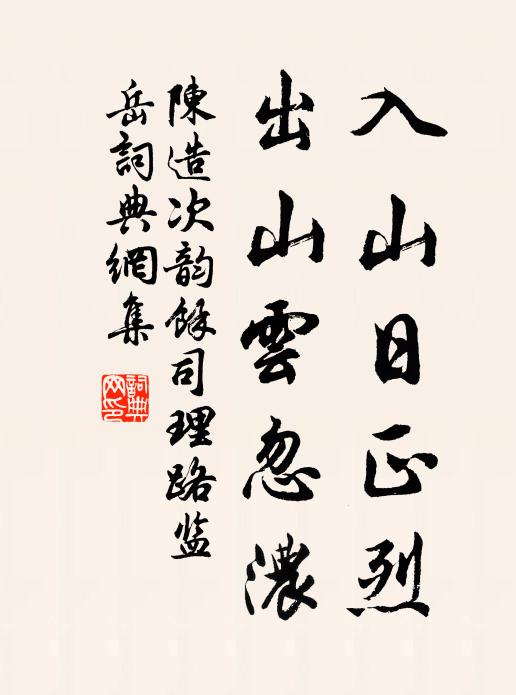 入山日正烈
出山雲忽濃
陳造次韵餘司理路监
岳詞典網集
詞典
网印